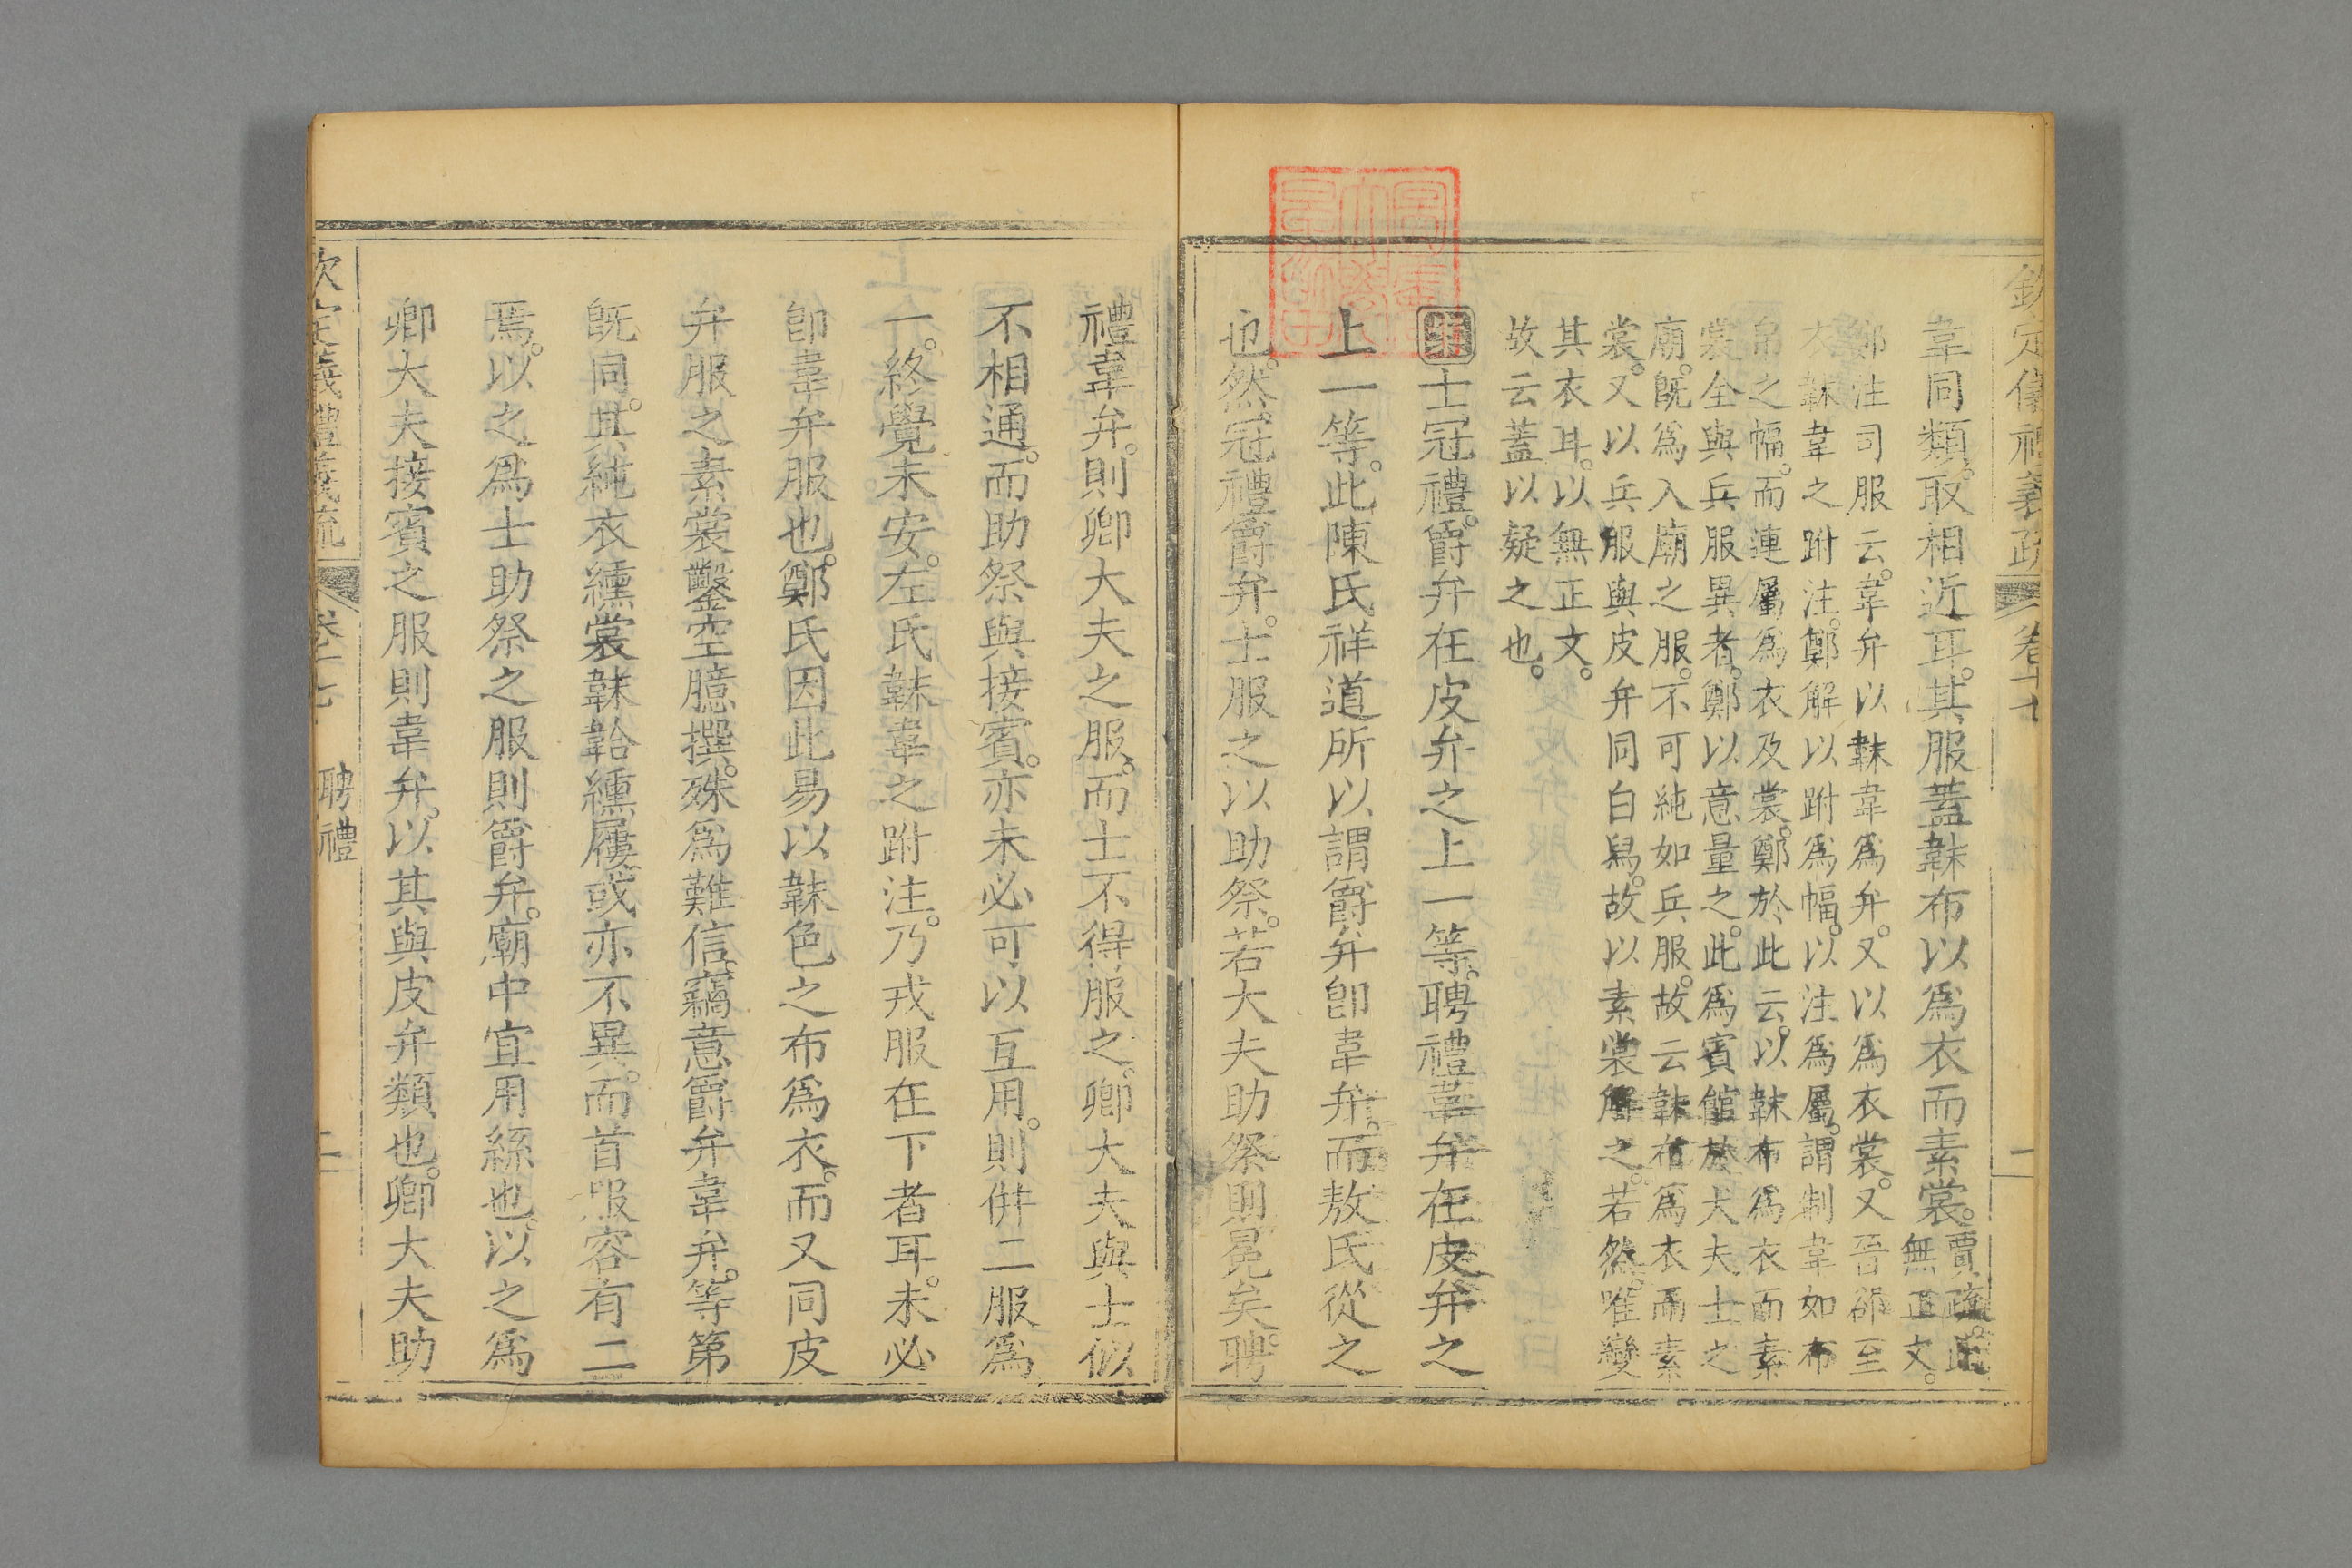 欽定儀禮義疏 卷十七 二
韋同類。取相近耳。其服蓋韎布以為衣而素裳。賈疏。此無正文。
鄭注司服云。韋弁以韎韋為弁。又以為衣裳。又晉郤至
衣韎韋之跗注。鄭解以跗為幅。以注為屬。謂制韋如布
帛之幅。而連屬為衣及裳。鄭於此云。以韎布為衣而素
裳全與兵服異者。鄭以意量之。此為賓館於大夫士之
廟。既為入廟之服。不可純如兵服。故云韎布為衣而素
裳。又以兵服與皮弁同白舄。故以素裳解之。若然。唯變
其衣耳。以無正文。
故云蓋以疑之也。
士冠禮。爵弁在皮弁之上一等。聘禮韋弁在皮弁之
上一等。此陳氏祥道所以謂爵弁卽韋弁。而敖氏從之
也。然冠禮爵弁。士服之以助祭。若大夫助祭則冕矣。聘
禮韋弁。則卿大夫之服。而士不得服之。卿大夫與士似
不相通。而助祭與接賓。亦未必可以互用。則倂二服為
一。終覺未安。左氏韎韋之跗注。乃戎服在下者耳。未必
卽韋弁服也。鄭氏因此易以韎色之布為衣。而又同皮
弁服之素裳鑿空臆撰。殊為難信。竊意爵弁韋弁。等第
旣同。其純衣纁裳韎韐纁屨或亦不異。而首服容有二
焉。以之為士助祭之服則爵弁。廟中宜用絲也。以之為
卿大夫接賓之服則韋弁。以其與皮弁類也。卿大夫助
欽定儀禮義疏 卷十七 聘禮 二